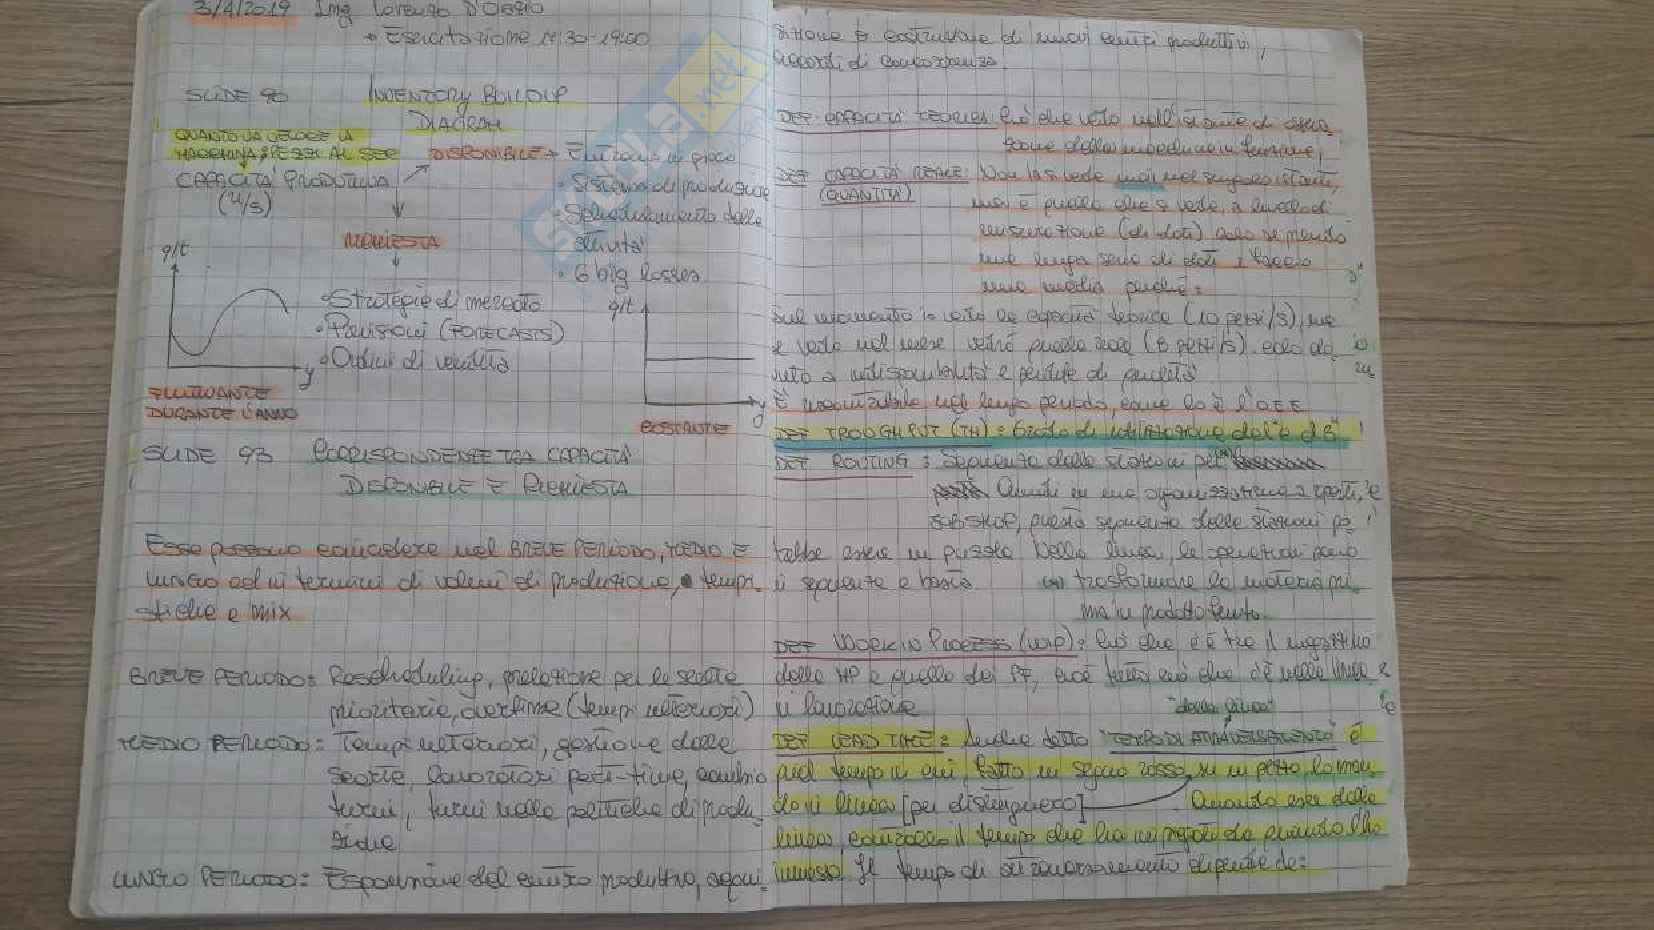 3/4/2019 Ing Lorenzo D'Orazio
→ Esercitazione 17:30-19:00
SLIDE 90 INVENTORY BUILDUP
DIAGRAM
QUANTO VA VELOCE LA
MACCHINA, PEZZI AL SEC
CAPACITÀ PRODUTTIVA
(U/S)
DISPONIBILE → Entrano in gioco
• Sistema di produzione
• Schedulamento delle
attività
• 6 big losses
RICHIESTA
• Strategie di mercato
• Previsioni (FORECASTS)
• Ordini di vendita
q/t
y
FLUTTUANTE
DURANTE L'ANNO
q/t
y
COSTANTE
SLIDE 93 CORRISPONDENZE TRA CAPACITÀ
DISPONIBILE E RICHIESTA
Esse possono equivalere nel BREVE PERIODO, MEDIO E
LUNGO ed in termini di volumi di produzione, tempi-
stiche e mix
BREVE PERIODO: Rescheduling, prelazione per le scorte
prioritarie, overtime (tempi ulteriori)
MEDIO PERIODO: Tempi ulteriori, gestione delle
scorte, lavoratori part-time, cambio
turni, turni nelle politiche di produ-
zione
LUNGO PERIODO: Espansione del centro produttivo, acqui-
sizione o costruzione di nuovi centri produttivi,
accordi di
DEF CAPACITÀ TEORICA: Ciò che vedo nell'istante di osserva-
zione della macchina in funzione,
DEF CAPACITÀ REALE: Non la si vede mai nel singolo istante,
(QUANTITÀ) ma è quella che si vede, a livello di
misurazione (di dati) solo se prendo
una lunga serie di dati e faccio
una media perché:
Sul momento io vedo la capacità teorica (10 pezzi/s), ma
se vedo nel mese vedrò quella reale (8 pezzi/s)
a indisponibilità e perdite di qualità
È misurabile nel lungo periodo, come lo è l'OEE
DEF TROUGHPUT (TH): Grado di
DEF ROUTING: Sequenza delle stazioni per
Quindi in una organizzazione a reparti, e
JOBSHOP, questa sequenza delle stazioni po-
trebbe essere un puzzle. Nella linea, le operazioni sono
in sequenza e basta trasformare la materia pri-
ma in prodotto finito.
DEF WORK IN PROCESS (WIP): Ciò che c'è tra il magazzino
delle MP e quello dei PF, cioè tutto ciò che c'è nella linea e
in lavorazione "della linea"
DEF LEAD TIME: Anche detto "TEMPO DI ATTRAVERSAMENTO" è
quel tempo in cui, fatto un segno rosso su un pezzo, lo man-
do in linea [per distinguerlo]. Quando esce dalla
linea, controllo il tempo che ha impiegato da quando l'ho
immesso. Il tempo di attraversamento dipende da: